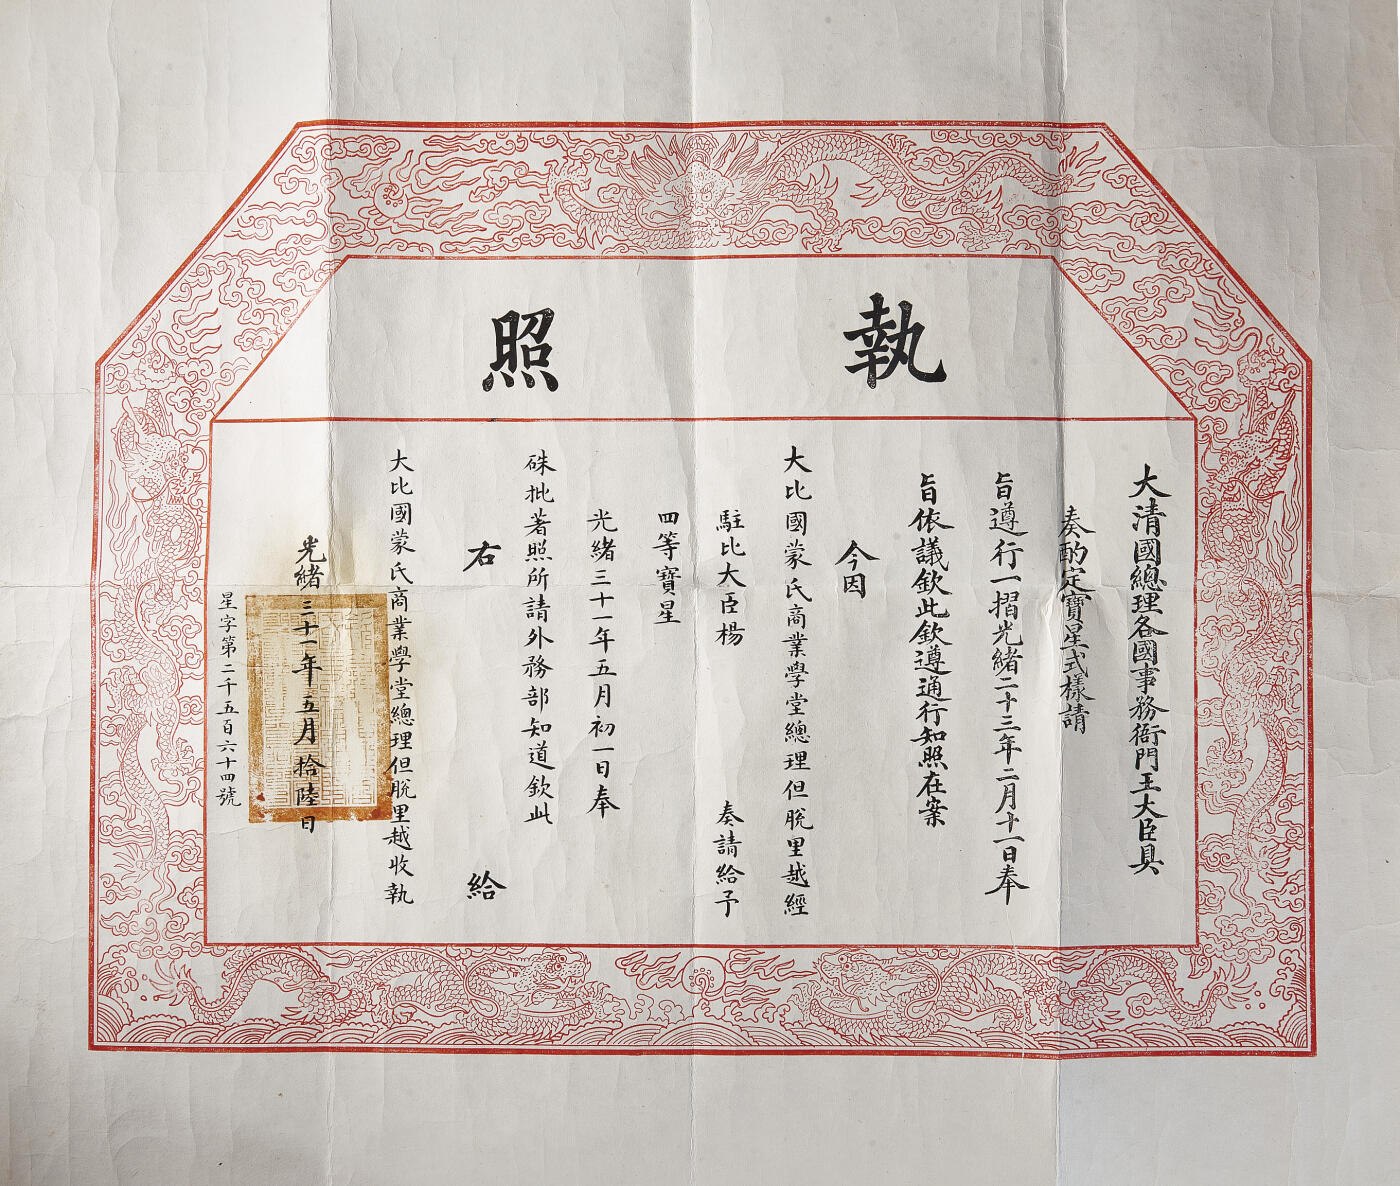 執照
大清國總理各國事務衙門王大臣具
奏酌定寶星式樣請
旨遵行一摺光緒二十三年二月十一日奉
旨依議欽此欽遵通行知照在案
今因
大比國蒙氏商業學堂總理但脫里越經
駐比大臣楊 奏請給予
四等寶星
光緒三十一年五月初一日奉
硃批著照所請外務部知道欽此
右 給
大比國蒙氏商業學堂總理但脫里越收執
光緒三十一年五月拾陸日
星字第二千五百六十四號